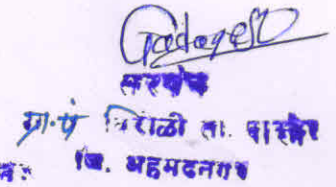 सरपंच
ग्रा.पं निराळी ता. पारनेर
जि. अहमदनगर